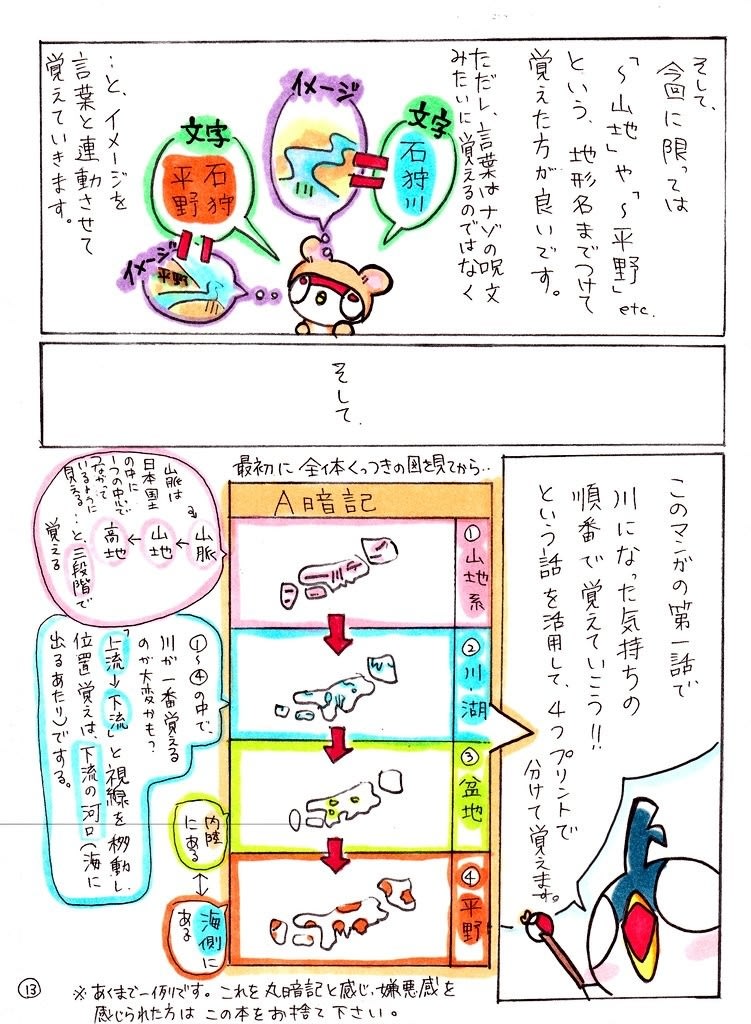 そして、
今回に限っては
「～山地」や「～平野」etc.
という、地形名までつけて
覚えた方が良いです。
ただし、言葉はナゾの呪文
みたいに覚えるのではなく
文字
石狩川
イメージ
文字
石狩
平野
イメージ
平野
…と、イメージを
言葉と連動させて
覚えていきます。
そして、
このマンガの第一話で、
川になった気持ちの
順番で覚えていこう!!
という話を活用して、4つプリントで
分けて覚えます。
最初に全体くっつきの図を見てから‥
A暗記
①山地系
②川・湖
③盆地
④平野
山脈は
日本国土
の中に
1つの中心で
つながって
いるように
見える
山脈
←山地
←高地
…と、三段階で
覚える
①～④の中で、
川が一番覚える
のが大変かも?
「上流→下流」と視線を移動し、
位置覚えは、下流の河口(海に
出るあたり)でする。
内陸
にある
↔
海側に
ある
※あくまで一例です。これを丸暗記と感じ、嫌悪感を
感じられた方はこの本をお捨て下さい。
⑬